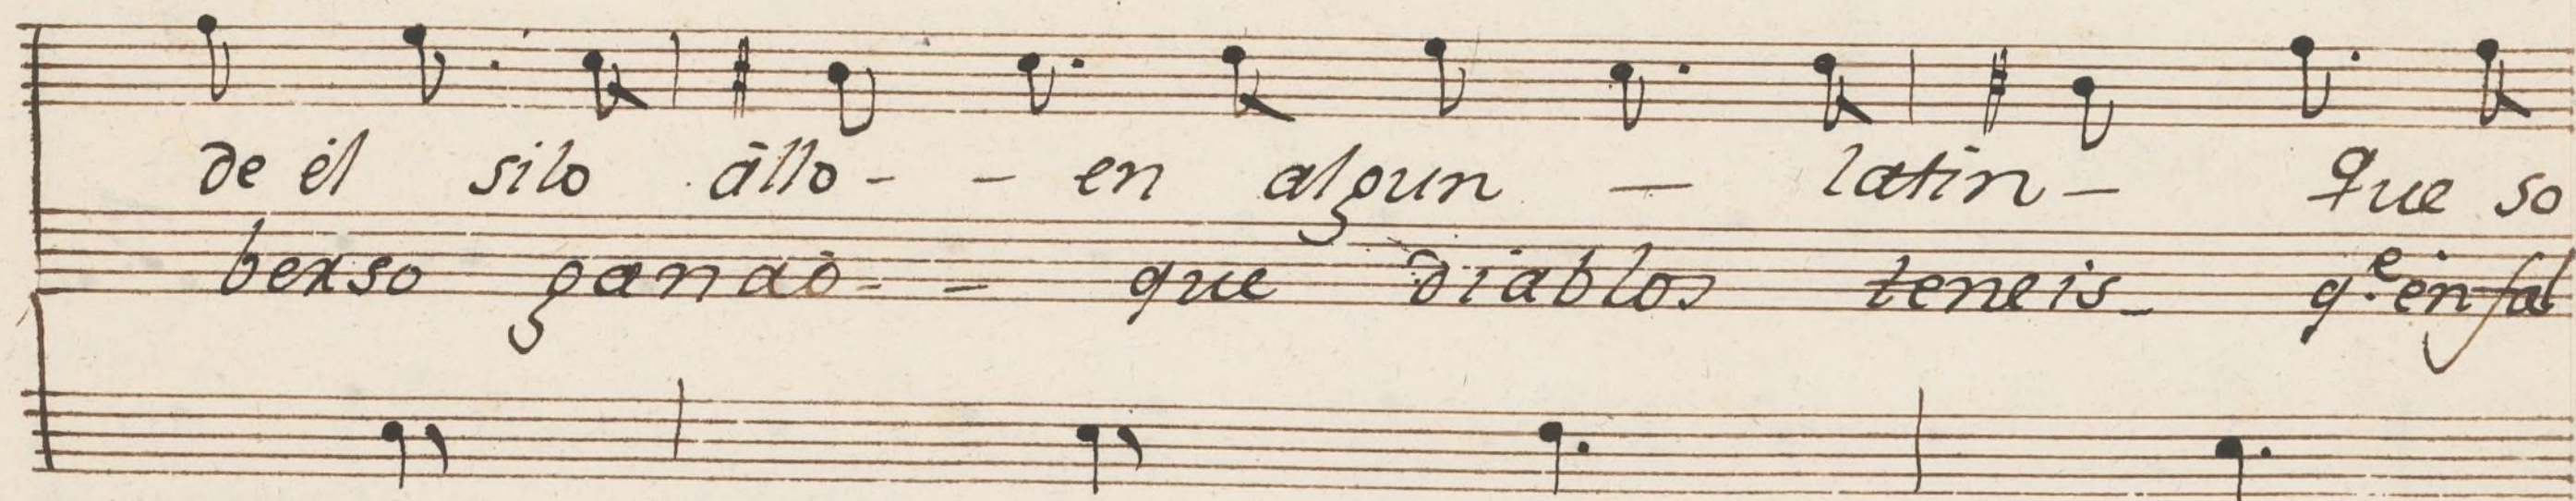 de él silo àllo - - en algun — latin - que so
berso ganào - - que diablos teneis - q.e en fal